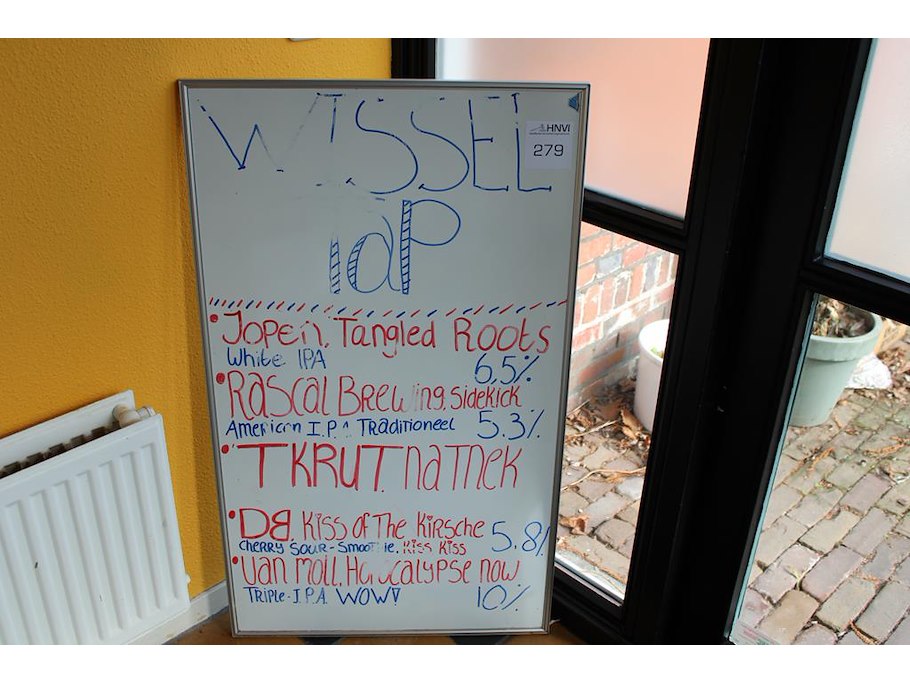 WISSEL
TaP
HNVI
279
Jopen. Tangled Roots
White IPA 6,5%
Rascal Brewing. Sidekick
American I.P.A Traditioneel 5.3%
TKRUT. naTNEK
DB. Kiss of The Kirsche 5.8%
Cherry Sour-Smoothie. Kiss Kiss
Van Moll. Hopocalypse now
Triple-I.P.A. WOW! 10%